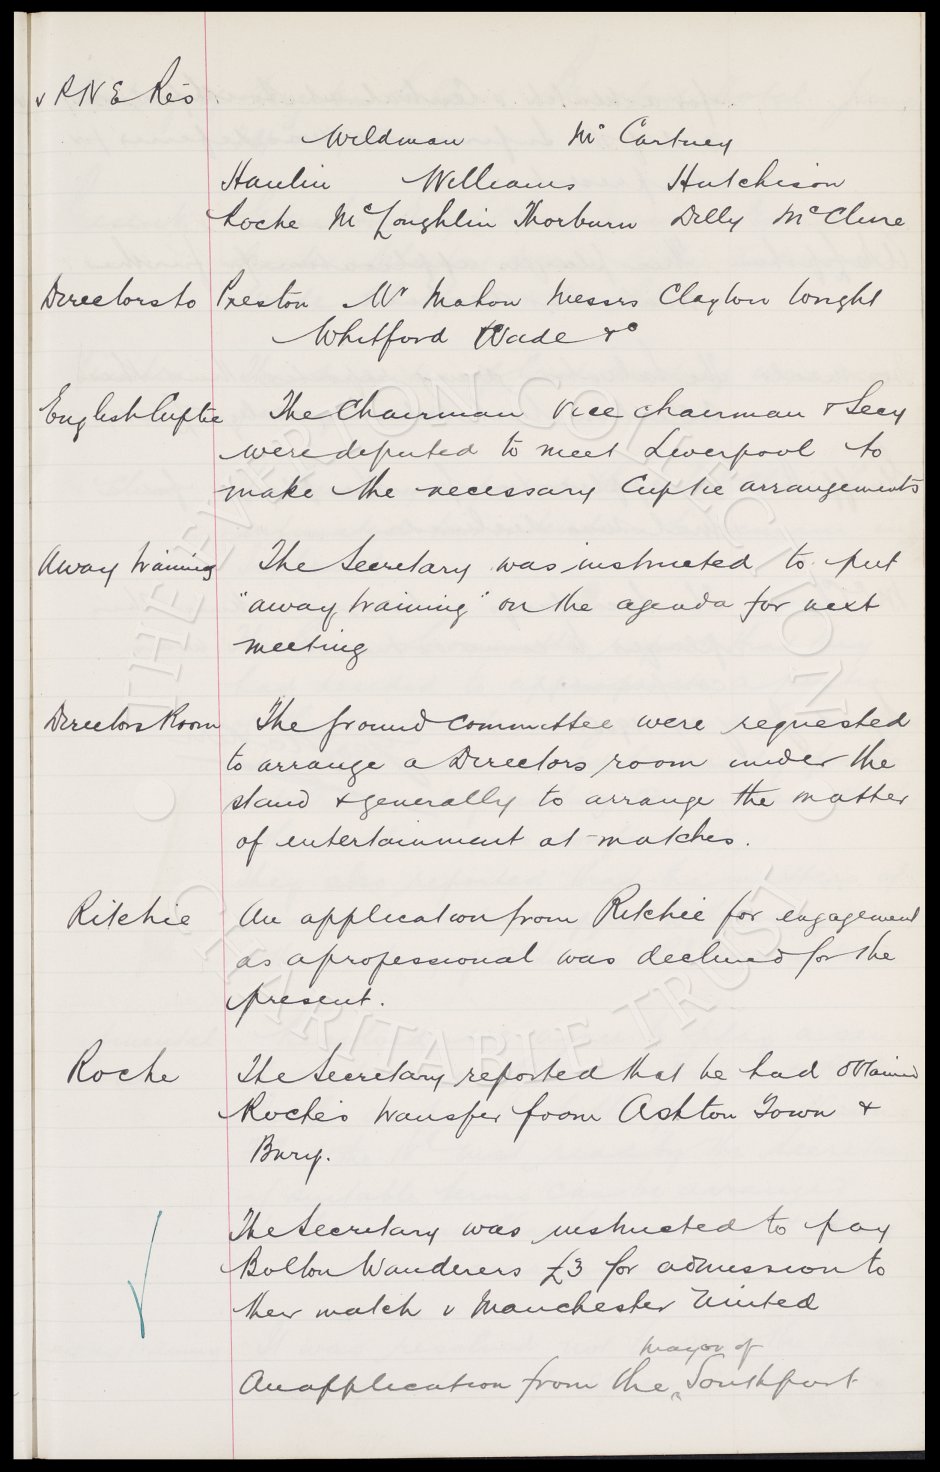 v P N E Res
Wildman Mc Cartney
Hanlin Williams Hutchison
Roche McLoughlin Thorburn Dilly McClure
Directors to Preston Mr Mahon Messrs Clayton Wright
Whitford Wade &c
English Cuptie The Chairman Vice chairman & Secy
were deputed to meet Liverpool to
make the necessary Cuptie arrangements
Away training The Secretary was instructed to put
"away training" on the agenda for next
meeting
Directors Room The Ground Committee were requested
to arrange a Directors room under the
stand & generally to arrange the matter
of entertainment at matches.
Ritchie An application from Ritchie for engagement
as a professional was declined for the
present.
Roche The Secretary reported that he had obtained
Roche's transfer from Ashton Town &
Bury.
The Secretary was instructed to pay
Bolton Wanderers £3 for admission to
their match v Manchester United
mayor of
An application from the Southport
THE EVERTON COLLECTION
CHARITABLE TRUST